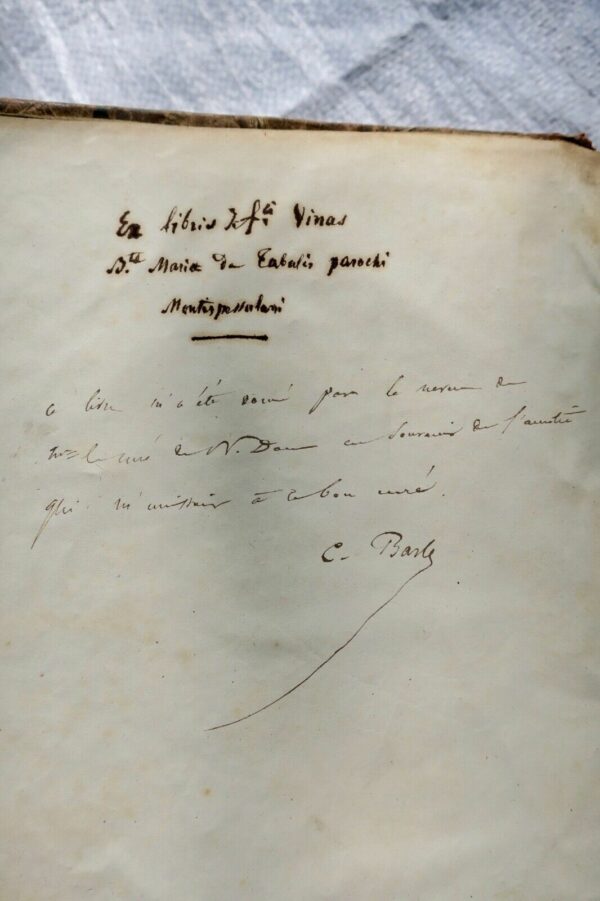 Ex libris Vinas
B.tæ Mariæ de Tabulis parochi
Montispessulani
ce livre m'a été donné par le neveu de
Mr le curé de N. Dame en souvenir de l'amitié
qui m'unissait à ce bon curé.
C. Barle